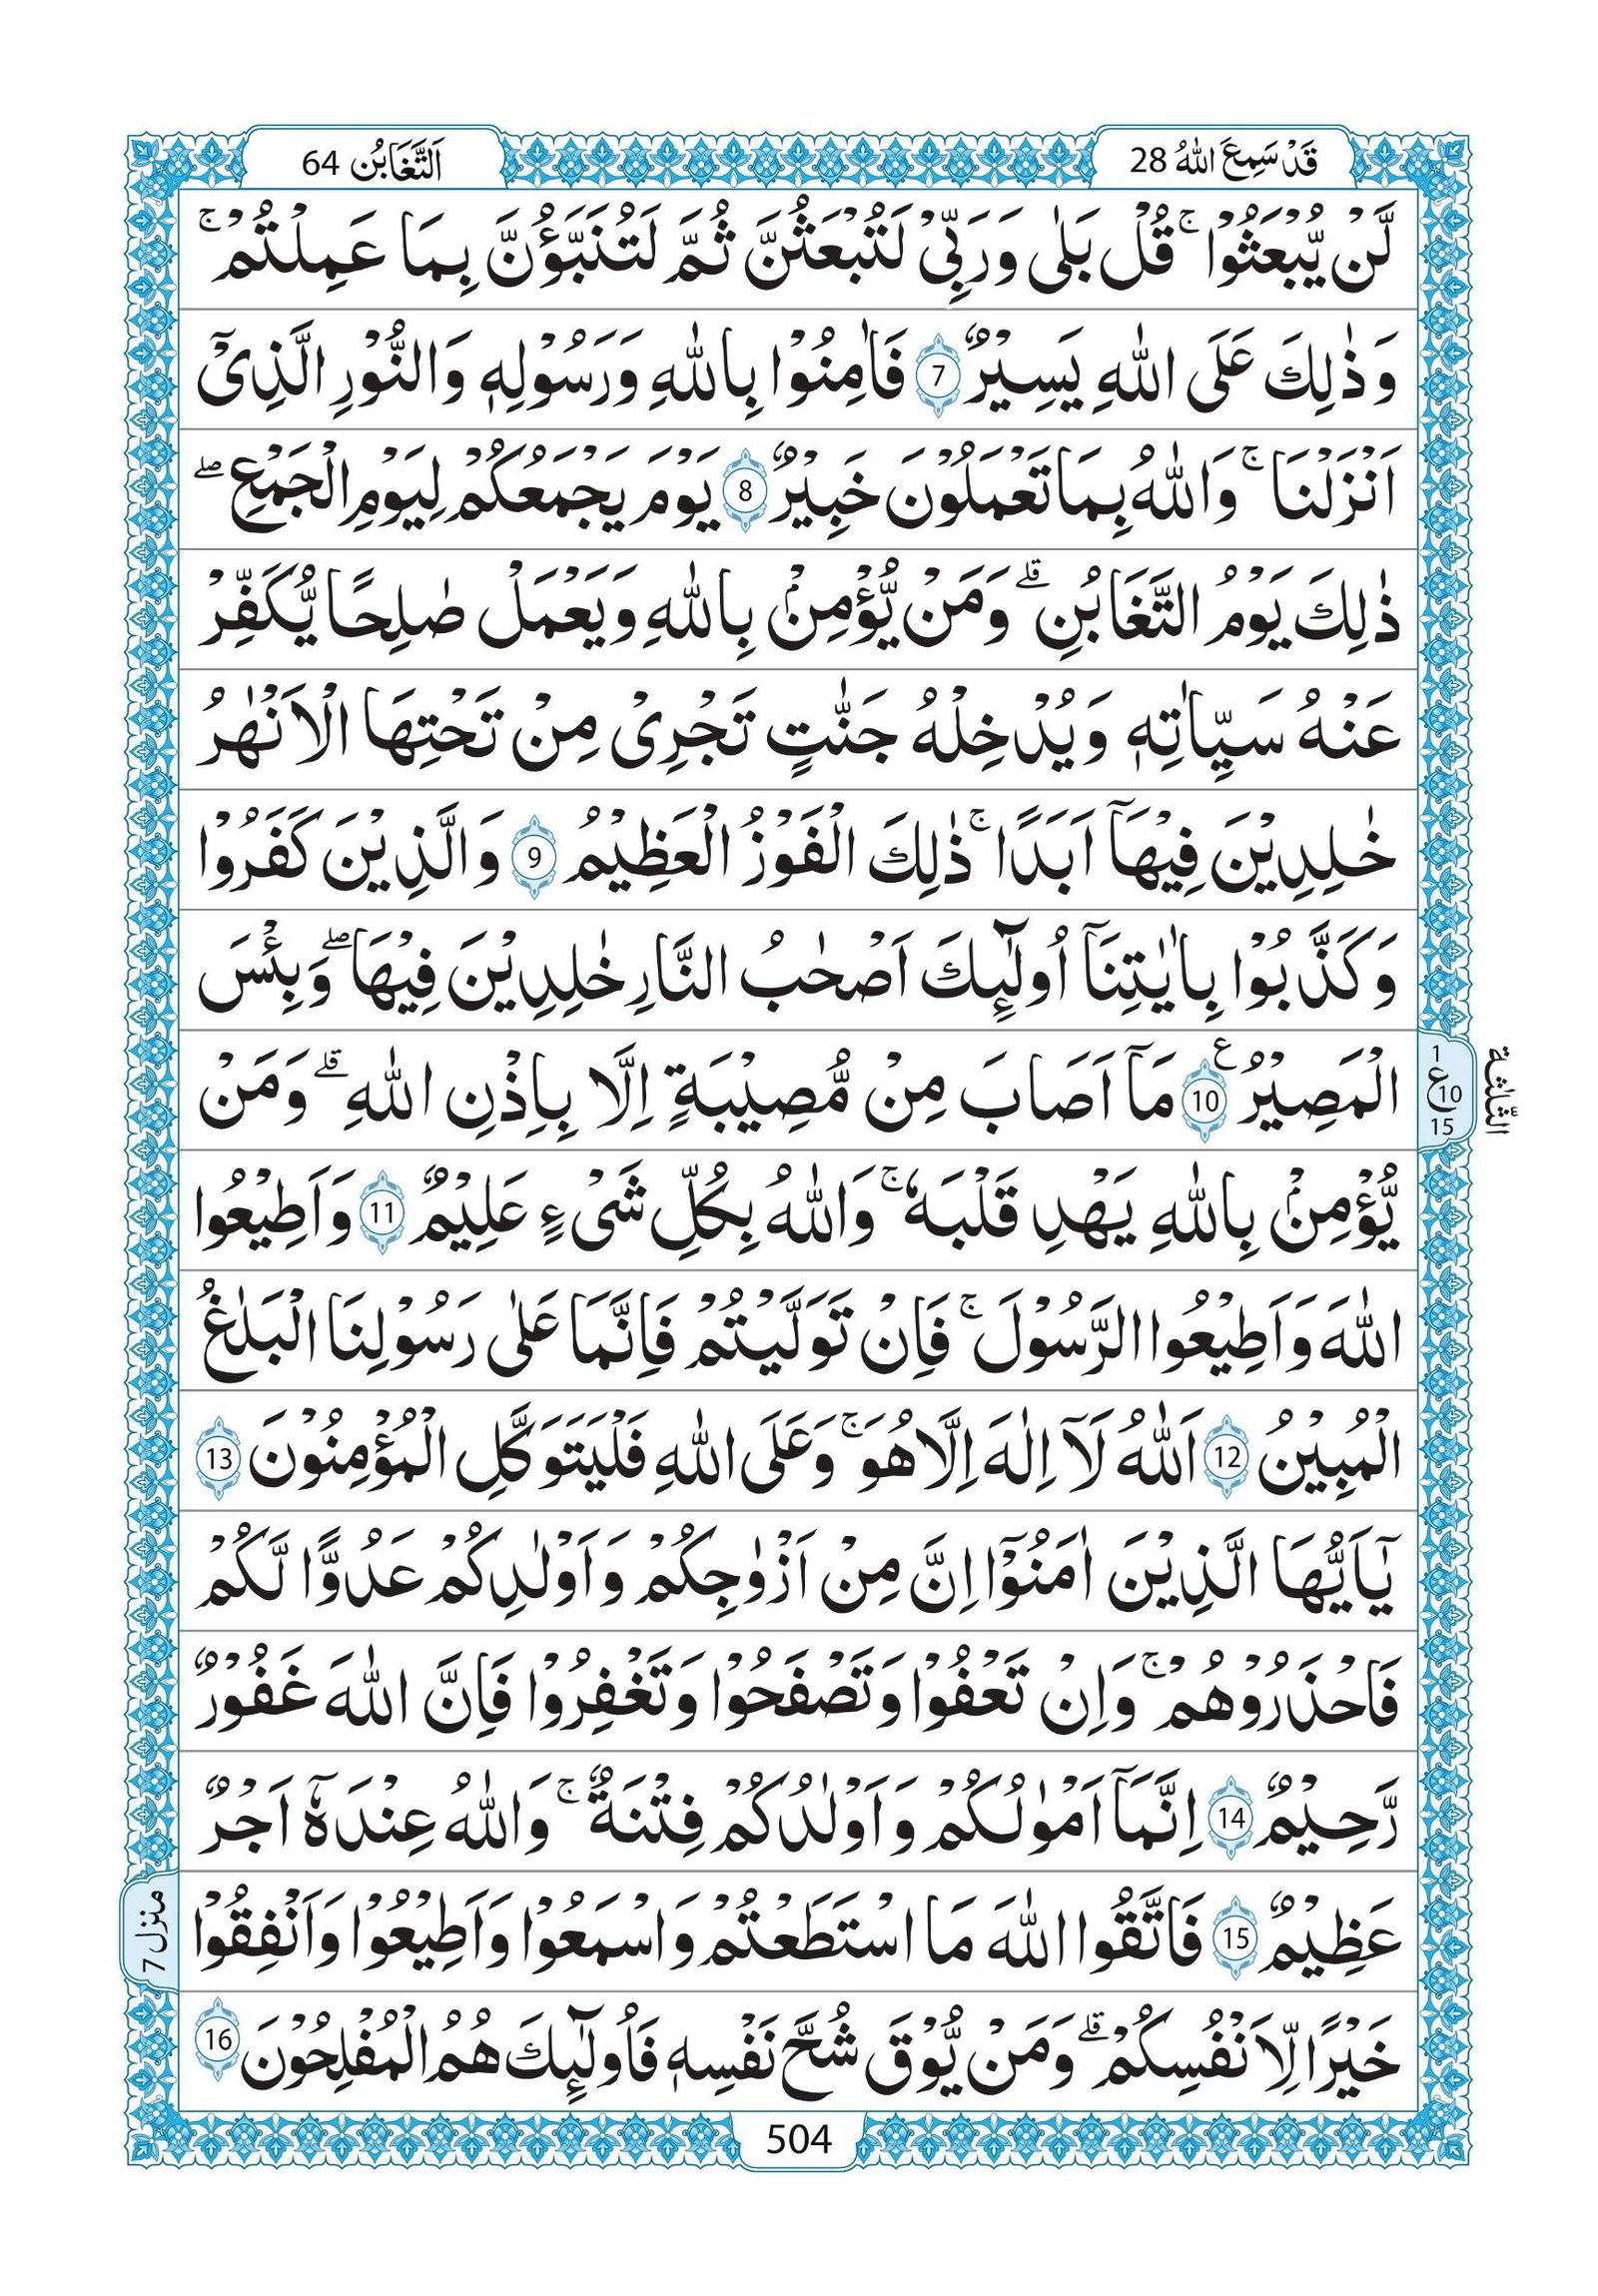 قَدْ سَمِعَ اللّٰهُ 28
اَلتَّغَابُن 64
لَّنْ يُّبْعَثُوْا ۚ قُلْ بَلٰى وَرَبِّيْ لَتُبْعَثُنَّ ثُمَّ لَتُنَبَّؤُنَّ بِمَا عَمِلْتُمْ ۚ
وَذٰلِكَ عَلَى اللّٰهِ يَسِيْرٌ 7 فَاٰمِنُوْا بِاللّٰهِ وَرَسُوْلِهٖ وَالنُّوْرِ الَّذِيْٓ
اَنْزَلْنَا ۚ وَاللّٰهُ بِمَا تَعْمَلُوْنَ خَبِيْرٌ 8 يَوْمَ يَجْمَعُكُمْ لِيَوْمِ الْجَمْعِ ۖ
ذٰلِكَ يَوْمُ التَّغَابُنِ ۗ وَمَنْ يُّؤْمِنْۢ بِاللّٰهِ وَيَعْمَلْ صٰلِحًا يُّكَفِّرْ
عَنْهُ سَيِّاٰتِهٖ وَيُدْخِلْهُ جَنّٰتٍ تَجْرِيْ مِنْ تَحْتِهَا الْاَنْهٰرُ
خٰلِدِيْنَ فِيْهَآ اَبَدًا ۚ ذٰلِكَ الْفَوْزُ الْعَظِيْمُ 9 وَالَّذِيْنَ كَفَرُوْا
وَكَذَّبُوْا بِاٰيٰتِنَآ اُولٰٓئِكَ اَصْحٰبُ النَّارِ خٰلِدِيْنَ فِيْهَا ۖ وَبِئْسَ
الْمَصِيْرُ ع 10 مَآ اَصَابَ مِنْ مُّصِيْبَةٍ اِلَّا بِاِذْنِ اللّٰهِ ۗ وَمَنْ
يُّؤْمِنْۢ بِاللّٰهِ يَهْدِ قَلْبَهٗ ۚ وَاللّٰهُ بِكُلِّ شَيْءٍ عَلِيْمٌ 11 وَاَطِيْعُوا
اللّٰهَ وَاَطِيْعُوا الرَّسُوْلَ ۚ فَاِنْ تَوَلَّيْتُمْ فَاِنَّمَا عَلٰى رَسُوْلِنَا الْبَلٰغُ
الْمُبِيْنُ 12 اَللّٰهُ لَآ اِلٰهَ اِلَّا هُوَ ۚ وَعَلَى اللّٰهِ فَلْيَتَوَكَّلِ الْمُؤْمِنُوْنَ 13
يٰٓاَيُّهَا الَّذِيْنَ اٰمَنُوْٓا اِنَّ مِنْ اَزْوٰجِكُمْ وَاَوْلٰدِكُمْ عَدُوًّا لَّكُمْ
فَاحْذَرُوْهُمْ ۚ وَاِنْ تَعْفُوْا وَتَصْفَحُوْا وَتَغْفِرُوْا فَاِنَّ اللّٰهَ غَفُوْرٌ
رَّحِيْمٌ 14 اِنَّمَآ اَمْوٰلُكُمْ وَاَوْلٰدُكُمْ فِتْنَةٌ ۚ وَاللّٰهُ عِنْدَهٗٓ اَجْرٌ
عَظِيْمٌ 15 فَاتَّقُوا اللّٰهَ مَا اسْتَطَعْتُمْ وَاسْمَعُوْا وَاَطِيْعُوْا وَاَنْفِقُوْا
خَيْرًا لِّاَنْفُسِكُمْ ۗ وَمَنْ يُّوْقَ شُحَّ نَفْسِهٖ فَاُولٰٓئِكَ هُمُ الْمُفْلِحُوْنَ 16
1
ع 10
15
الثّلٰثة
منزل 7
504